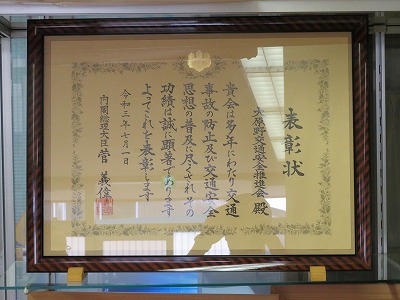 表彰状
大原野交通安全推進会 殿
貴会は多年にわたり交通
事故の防止及び交通安全
思想の普及に尽くされその
功績は誠に顕著であります
よってこれを表彰します
令和三年七月一日
内閣総理大臣 菅 義偉